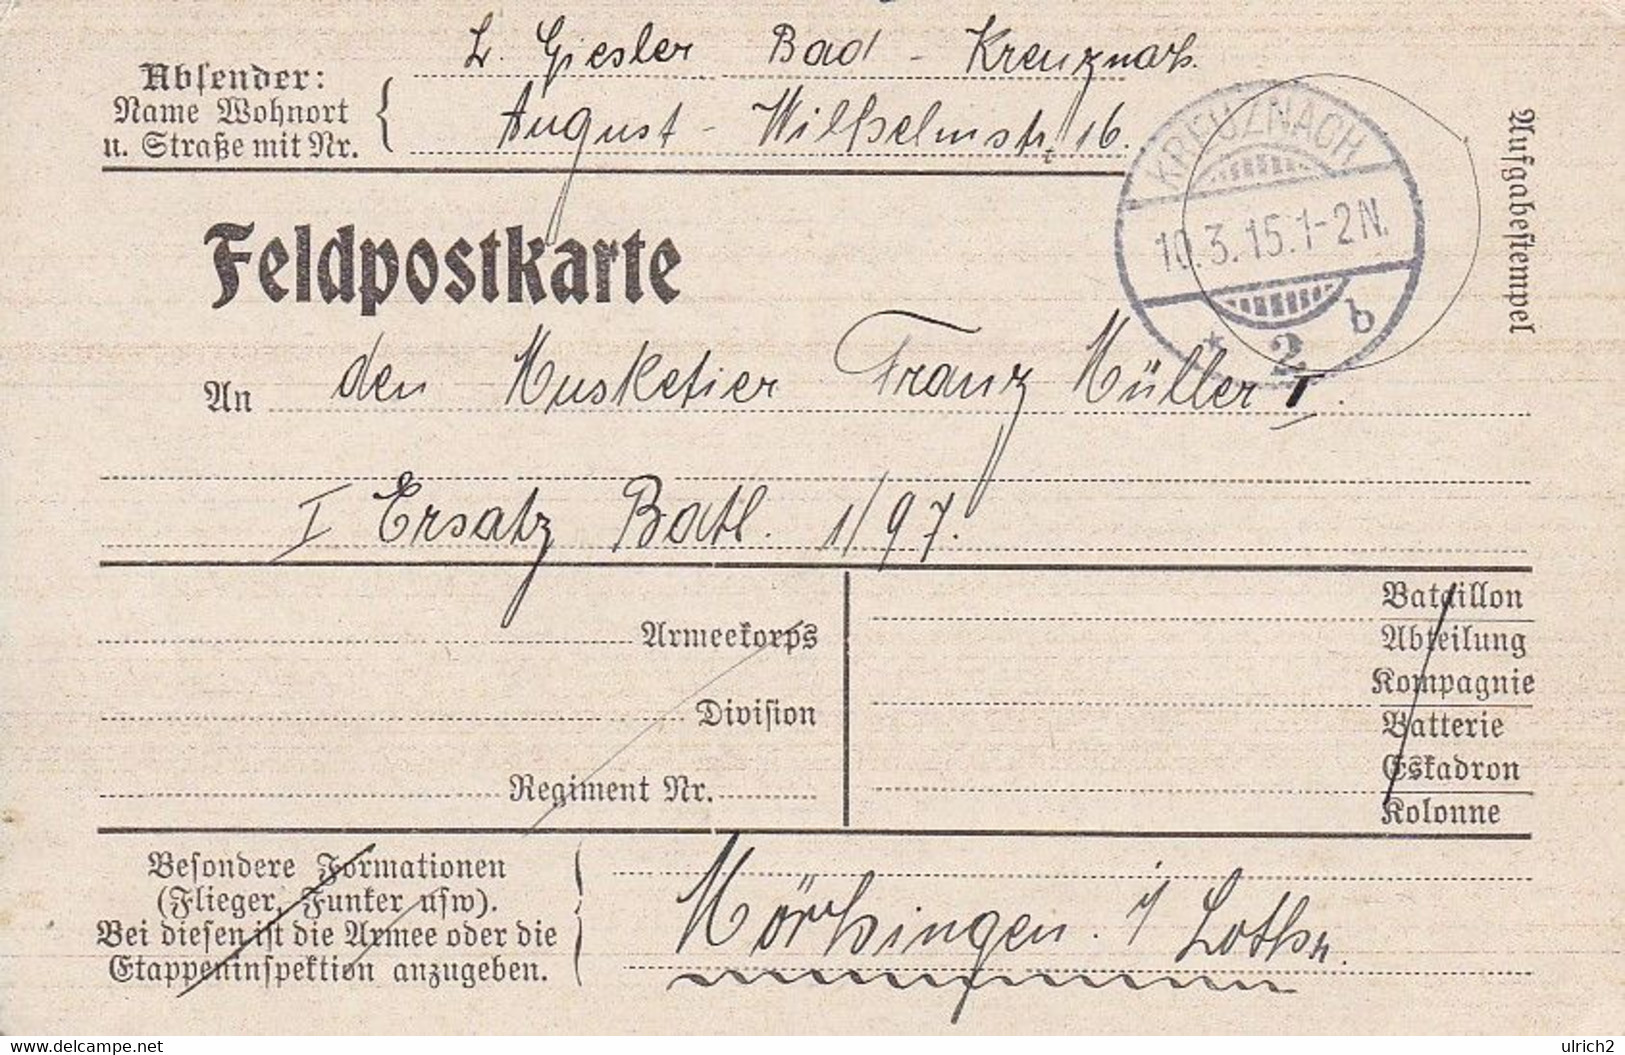 L. Giesler Bad - Kreuznach.
Absender:
Name Wohnort
u. Straße mit Nr.
August - Wilhelmstr. 16.
KREUZNACH
10.3.15.1-2N.
* 2 b
Aufgabestempel
Feldpostkarte
An den Musketier Franz Müller I.
I Ersatz Batl. 1/97.
Armeekorps
Division
Regiment Nr.
Bataillon
Abteilung
Kompagnie
Batterie
Eskadron
Kolonne
Besondere Formationen
(Flieger, Funker usw).
Bei diesen ist die Armee oder die
Etappeninspektion anzugeben.
Mörchingen. i/ Lothr.
www.delcampe.net
ulrich2